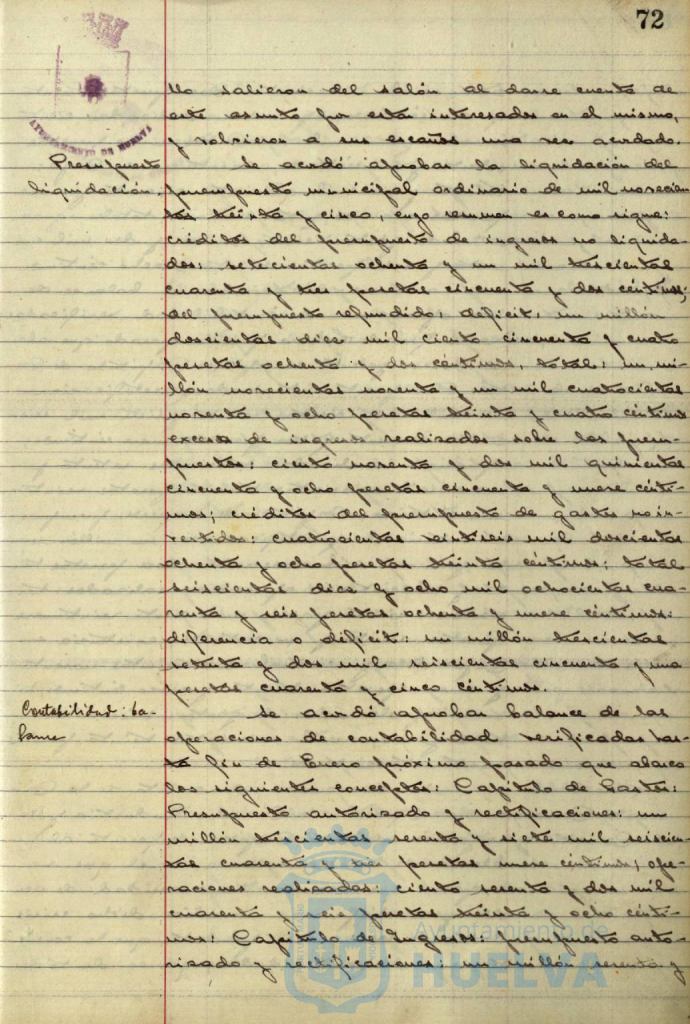 72
AYUNTAMIENTO DE HUELVA
llo salieron del salón al darse cuenta de
este asunto por estar interesados en el mismo,
y volvieron a sus escaños una vez acordado.
Presupuesto
liquidación.
Se acordó aprobar la liquidación del
presupuesto municipal ordinario de mil novecien
tos treinta y cinco, cuyo resumen es como sigue:
créditos del presupuesto de ingresos no liquida-
dos: setecientas ochenta y un mil trescientas
cuarenta y tres pesetas cincuenta y dos céntimos;
del presupuesto refundido; deficit: un millón
doscientas diez mil ciento cincuenta y cuatro
pesetas ochenta y dos céntimos, total: un mi-
llón novecientas noventa y un mil cuatrocientas
noventa y ocho pesetas treinta y cuatro céntimos
excesos de ingresos realizados sobre los presu-
puestos: ciento noventa y dos mil quinientas
cincuenta y ocho pesetas cincuenta y nueve cénti-
mos; créditos del presupuesto de gastos no in-
vertidos: cuatrocientas veintiseis mil doscientas
ochenta y ocho pesetas treinta céntimos: total
seiscientas diez y ocho mil ochocientas cua-
renta y seis pesetas ochenta y nueve céntimos:
diferencia o déficit: un millón trescientas
setenta y dos mil seiscientas cincuenta y una
pesetas cuarenta y cinco céntimos.
Contabilidad: ba-
lance
Se acordó aprobar balance de las
operaciones de contabilidad verificadas has-
ta fin de Enero próximo pasado que abarca
los siguientes conceptos: Capitulo de Gastos:
Presupuesto autorizado y rectificaciones: un
millón trescientas sesenta y siete mil seiscien-
tas cuarenta y tres pesetas nueve céntimos; ope-
raciones realizadas: ciento sesenta y dos mil
cuarenta y seis pesetas treinta y ocho cénti-
mos: Capitulo de Ingresos: presupuesto auto-
rizado y rectificaciones: un millón sesenta y
Ayuntamiento de
HUELVA